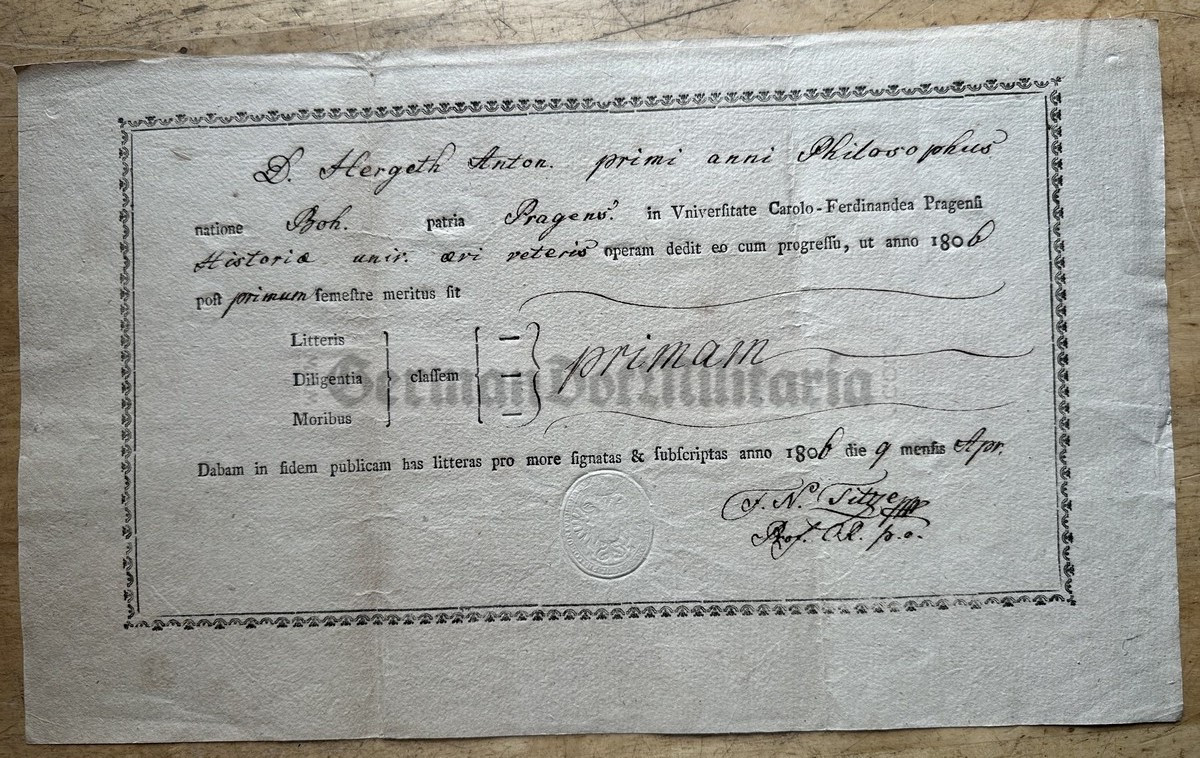 D. Hergeth Anton. primi anni Philosophus
natione Boh. patria Pragens. in Vniverſitate Carolo-Ferdinandea Pragenſi
Historiæ univ. ævi veteris operam dedit eo cum progreſſu, ut anno 1806
poſt primum ſemeſtre meritus ſit
Litteris
Diligentia
Moribus
claſſem
—
—
—
primam
Dabam in fidem publicam has litteras pro more ſignatas & ſubſcriptas anno 1806 die 9 menſis Apr.
F. N. Titze
Prof. p.o.